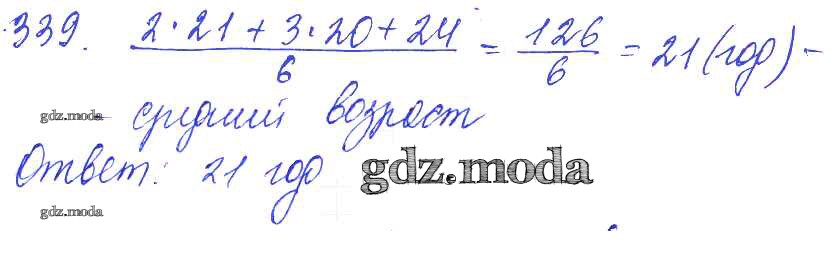 339. (2·21+3·20+24)/6 = 126/6 = 21 (год) –
gdz.moda средний возраст
Ответ: 21 год gdz.moda
gdz.moda